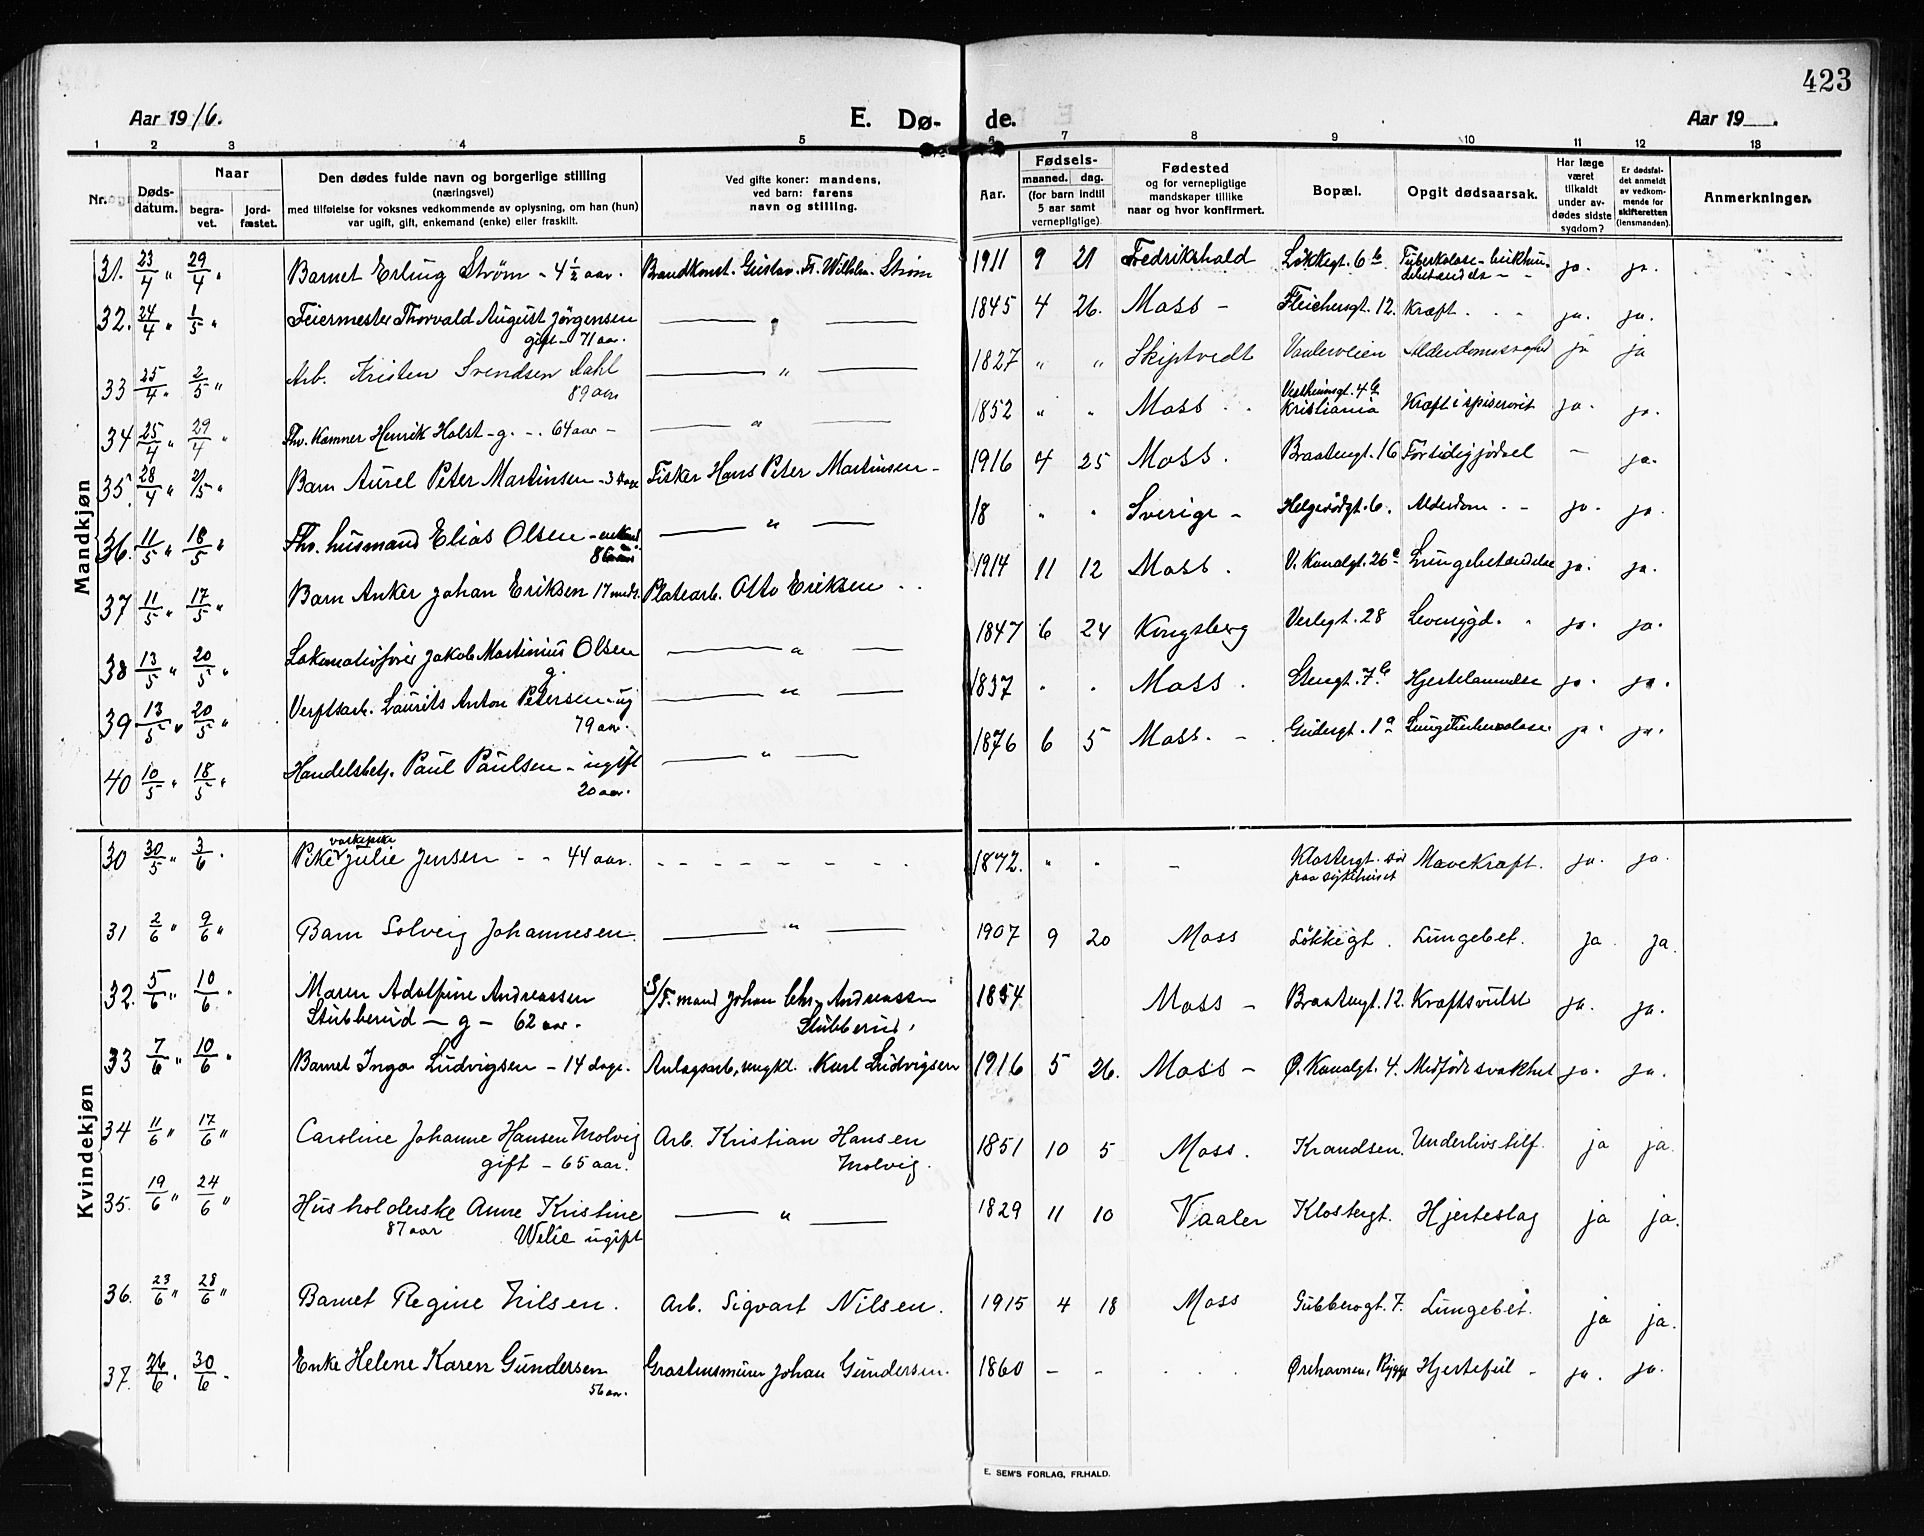 423
Aar 1916. E. Dø- de. Aar 19 .
1 2 3 4 5 6 7 8 9 10 11 12 13
Nr. Døds-datum. Naar begra-vet. jord-fæstet. Den dødes fulde navn og borgerlige stilling (næringsvei) med tilføielse for voksnes vedkommende av oplysning, om han (hun) var ugift, gift, enkemand (enke) eller fraskilt. Ved gifte koner: mandens, ved barn: farens navn og stilling. Aar. Fødsels- maaned. dag. (for barn indtil 5 aar samt vernepligtige) Fødested og for vernepligtige mandskaper tillike naar og hvor konfirmert. Bopæl. Opgit dødsaarsak. Har læge været tilkaldt under av-dødes sidste sygdom? Er dødsfal-det anmeldt av vedkom-mende for skifteretten (lensmanden). Anmerkninger.
Mandkjøn
31. 23/4 " 29/4 " Barnet Erling Strøm - 4 1/2 aar. Brandkonst. Gustav Fr. Wilhelm Strøm 1911 9 21 Fredrikshald Løkkegt. 6 b Tuberkulose ja. ja.
32. 24/4 " 1/5 " Feiermester Thorvald August Jörgensen gift - 71 aar. — " — 1845 4 26. Moss - Fleichersgt. 12. Kræft. ja. ja.
33 25/4 " 2/5 " Arb. Kristen Svendsen Dahl 89 aar — " — 1827 " " Skiptvedt Vaalerveien ja ja
34 25/4 " 29/4 " Fhv. Kæmner Henrik Holst - g. - 64 aar - — " — 1852 " " Moss Kristiania Kræft i spiserørit ja. ja.
35. 28/4 " 2/5 " Barn Aurel Peter Martinsen - 3 dage Fisker Hans Peter Martinsen - 1916 4 25 Moss. Braatengt. 16 Förtidig födsel - ja.
36. 11/5 " 18/5 " Fhv. husmand Elias Olsen - enkem. — " — 18 " " Sverige - Helgerødgt. 6. Alderdom - ja. ja.
37 11/5 " 17/5 " Barn Anker Johan Eriksen 17 mdr. Platearb. Otto Eriksen 1914 11 12 Moss. V. Kanalgt. 26 Lungebetændelse ja. ja.
38 13/5 " 20/5 " Lokomotivfører Jakob Martinius Olsen g. — " — 1847 6 24 Kongsberg Verlegt. 28 Leversygd. ja. ja.
39 13/5 " 20/5 " Verftsarb. Laurits Anton Petersen - ug 79 aar. — " — 1837 " " Moss. Stengt. 7 b Hjertelammelse ja. ja.
40 10/5 " 18/5 " Handelsbetj. Paul Paulsen - ugift 20 aar. — " — 1876 6 5 Moss. - 1 a Lungetuberculose. ja. ja.
Kvindekjøn
30 30/5 " 3/6 " Pike vaskepike Julie Jensen - - 44 aar. - - - - - 1872. " " - Klostergt. paa sykehuset Mavekræft. ja. ja.
31 2/6 " 9/6 " Barn Solveig Johannesen. — " — 1907 9 20 Moss Løkkegt. Lungebet. ja. ja.
32. 5/6 " 10/6 " Maren Adolfine Andreassen S/F. mand Johan Chr. Andreassen 1854. Moss - Braatengt. 12. Kræftsvulst ja. ja.
Stubberud - g - 62 aar. Stubberud.
33 7/6 " 10/6 " Barnet Inga Ludvigsen - 14 dage. Anlagsarb., ungkl. Karl Ludvigsen 1916 5 26. Moss - Ø. Kanalgt. 4. Medfødt svakhet ja. ja.
34 11/6 " 17/6 " Caroline Johanne Hansen Molvig Arb. Kristian Hansen 1851 10 5 Moss. Krandsen. Underlivstilf. ja ja.
gift - 65 aar. Molvig.
35. 19/6 " 24/6 " Husholderske Anne Kristine — " — 1829 11 10 Vaaler Klostergt. Hjerteslag ja ja.
87 aar ugift
36. 23/6 " 28/6 " Barnet Regine Nilsen. Arb. Sigvart Nilsen. 1915 4 18 Moss Gubberogt. 7. Lungebet. ja ja.
37. 26/6 " 30/6 " Enke Helene Karen Gundersen Johan Gundersen. 1860 - - Ørehavnen, Rygge Hjertefeil - ja. ja.
56 aar.
E. SEM'S FORLAG, FR.HALD.